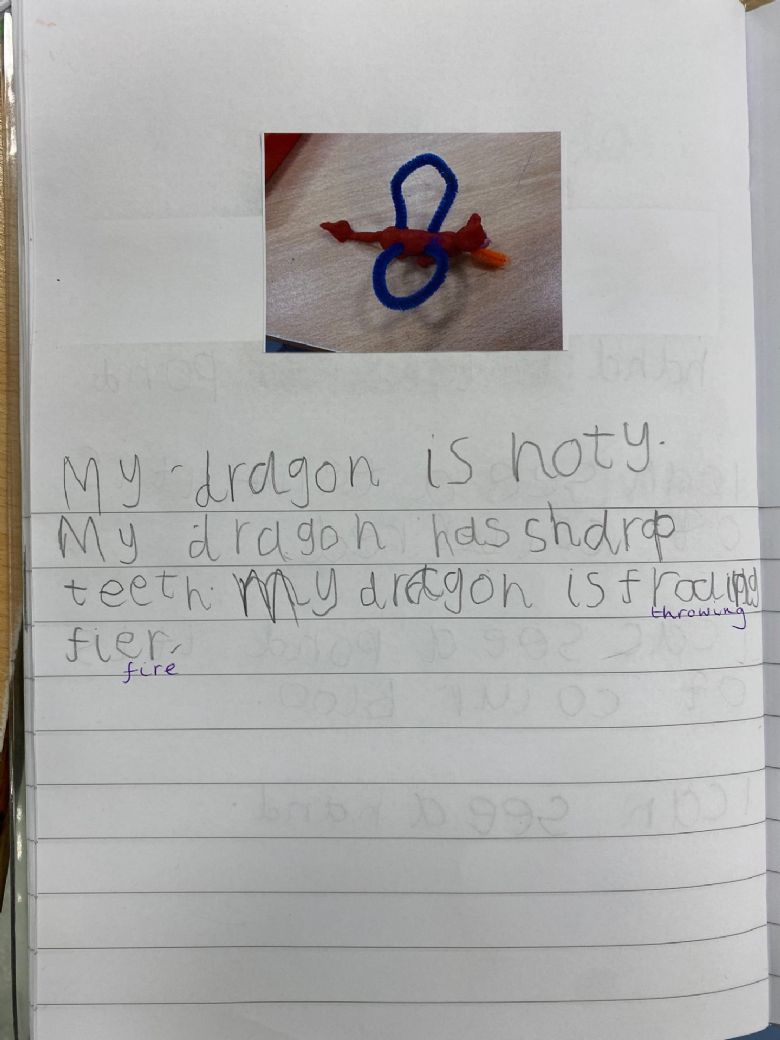 My dragon is noty.
My dragon has sharp
teeth. My dragon is
throwing
fier.
fire